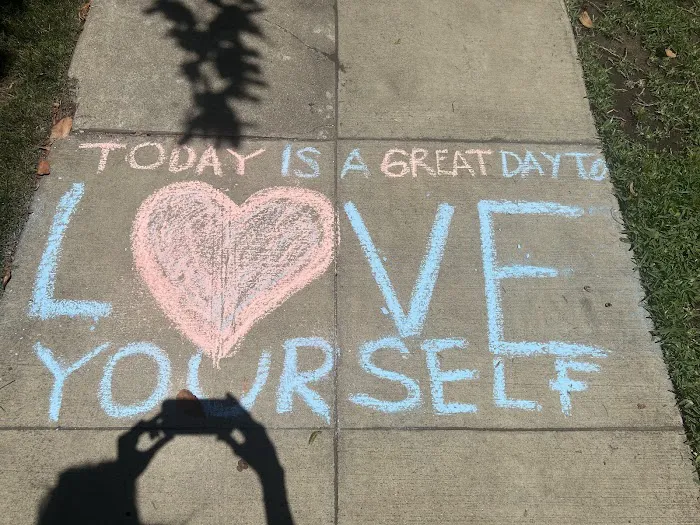 TODAY IS A GREAT DAY TO
L♥VE
YOURSELF